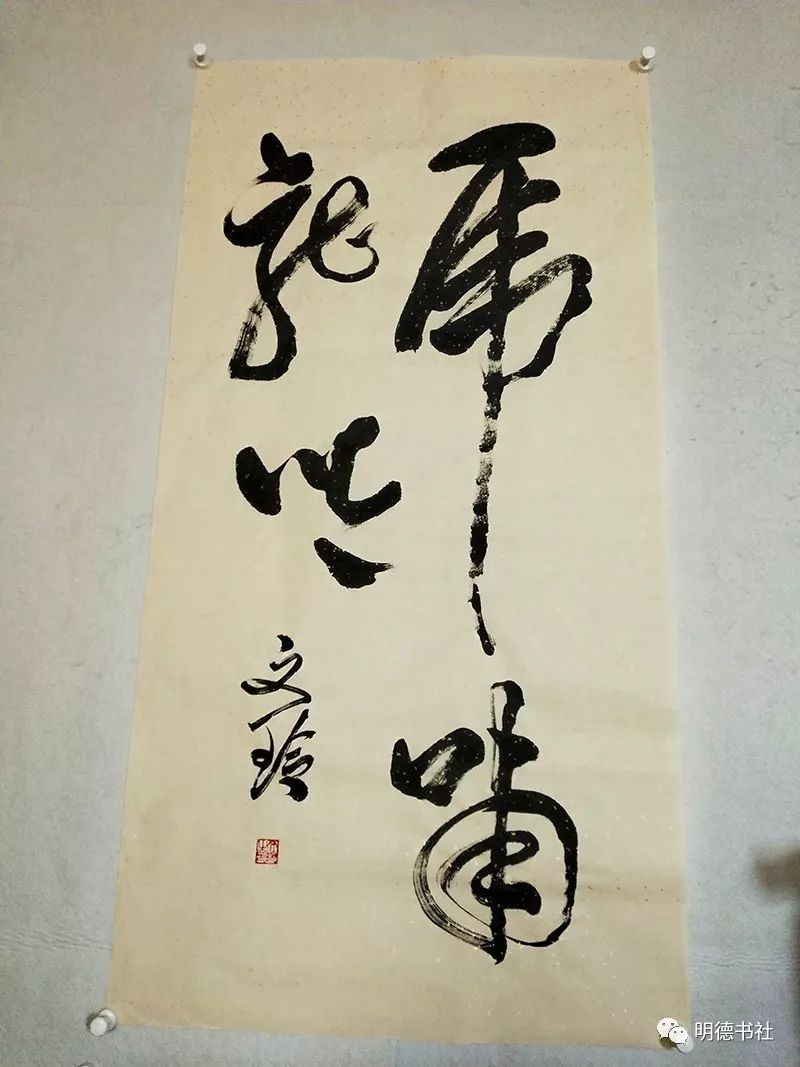 虎啸
龍吟
文玲
明德书社